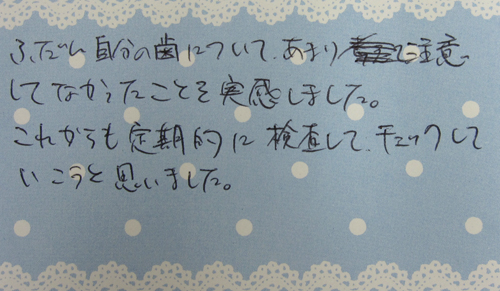 ふだん自分の歯について、あまり注意
してなかったことを実感しました。
これからも定期的に検査して、チェックして
いこうと思いました。